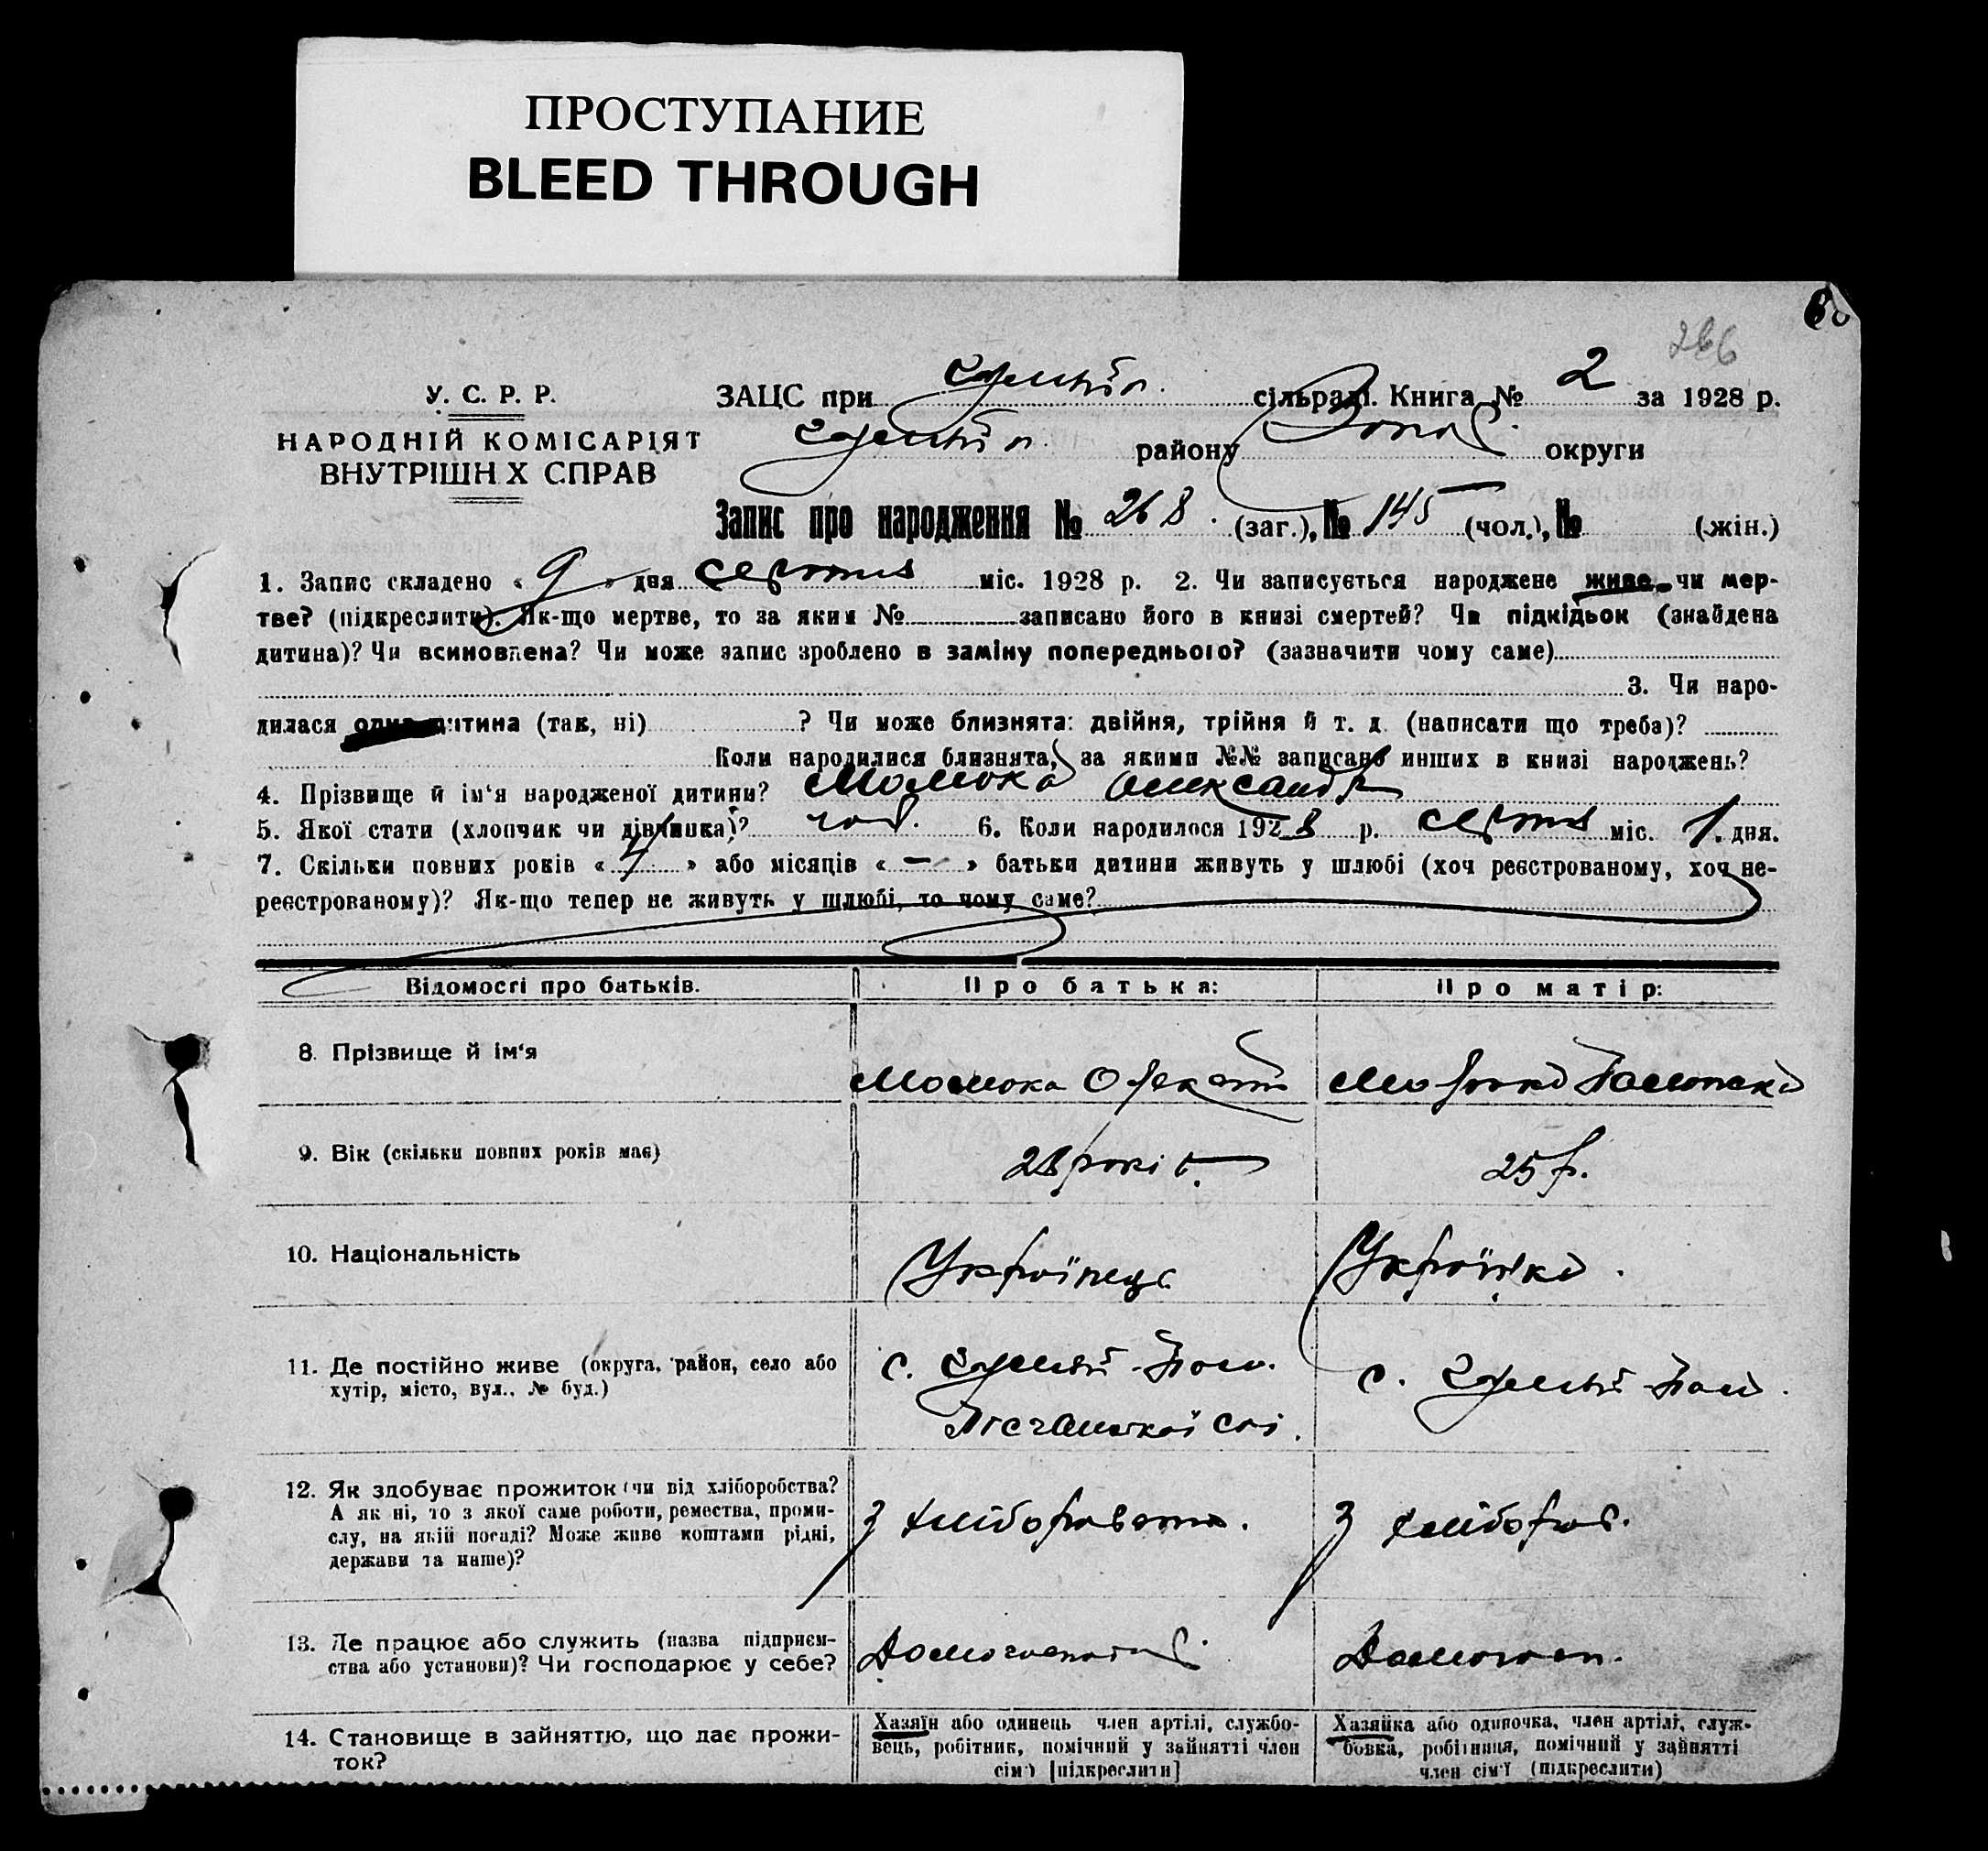 ПРОСТУПАНИЕ
BLEED THROUGH
266
У. С. Р. Р.
НАРОДНІЙ КОМІСАРІЯТ
ВНУТРІШН Х СПРАВ
ЗАЦС при сільраді. Книга № 2 за 1928 р.
району округи
Запис про народження № 268. (заг.), № 145 (чол.), № (жін.)
1. Запис складено « 9 » дня серпня міс. 1928 р. 2. Чи записується народжене живе чи мер-
тве? (підкреслити). Як-що мертве, то за яким № записано його в книзі смертей? Чи підкідьок (знайдена
дитина)? Чи всиновлена? Чи може запис зроблено в заміну попереднього? (зазначити чому саме)
3. Чи наро-
дилася одна дитина (так, ні) ? Чи може близнята: двійня, трійня й т. д. (написати що треба)?
Коли народилися близнята, за якими №№ записано инших в книзі народжень?
4. Прізвище й ім'я народженої дитини? Момока Олександр
5. Якої стати (хлопчик чи дівчинка)? чол. 6. Коли народилося 1928 р. серпня міс. 1. дня.
7. Скільки повних років « 4 » або місяців « — » батьки дитини живуть у шлюбі (хоч реєстрованому, хоч не-
реєстрованому)? Як-що тепер не живуть у шлюбі, то чому саме?
Відомості про батьків. Про батька: Про матір:
8. Прізвище й ім'я
Момока
9. Вік (скільки повних років має) 28 років. 25 р.
10. Національність Українець Українка.
11. Де постійно живе (округа, район, село або
хутір, місто, вул., № буд.)
с. с.
12. Як здобуває прожиток (чи від хліборобства?
А як ні, то з якої саме роботи, ремества, проми-
слу, на якій посаді? Може живе коштами рідні,
держави та инше)?
з хліборобства. з хлібороб.
13. Де працює або служить (назва підприєм-
ства або установи)? Чи господарює у себе?
Домогосподар. Домогосп.
14. Становище в зайняттю, що дає прожи-
ток?
Хазяїн або одинець член артілі, службо-
вець, робітник, помічний у зайнятті член
сім'ї [підкреслити]
Хазяйка або одиночка, член артілі, служ-
бовка, робітниця, помічний у зайнятті
член сім'ї (підкреслити)